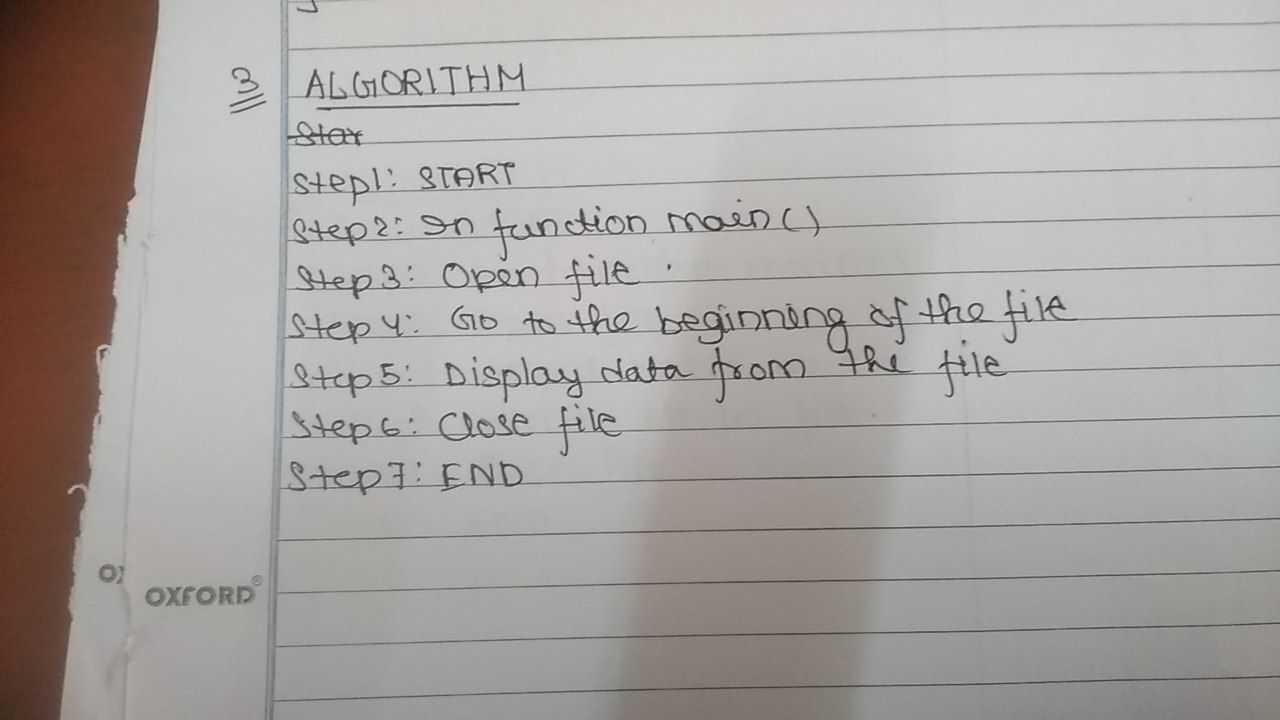 3 ALGORITHM
Star
Step1: START
Step2: In function main()
Step3: Open file.
Step4: Go to the beginning of the file
Step5: Display data from the file
Step6: Close file
Step7: END
OXFORD®